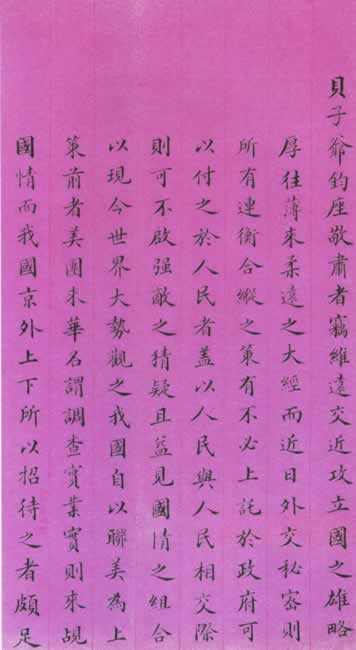 貝子爺鈞座敬肅者竊維遠交近攻立國之雄略
厚往薄來柔遠之大經而近日外交秘密則
所有連衡合縱之策有不必上託於政府可
以付之於人民者蓋以人民與人民相交際
則可不啟强敵之猜疑且益見國情之組合
以現今世界大勢觀之我國自以聯美為上
策前者美團來華名謂調查實業實則來覘
國情而我國京外上下所以招待之者頗足